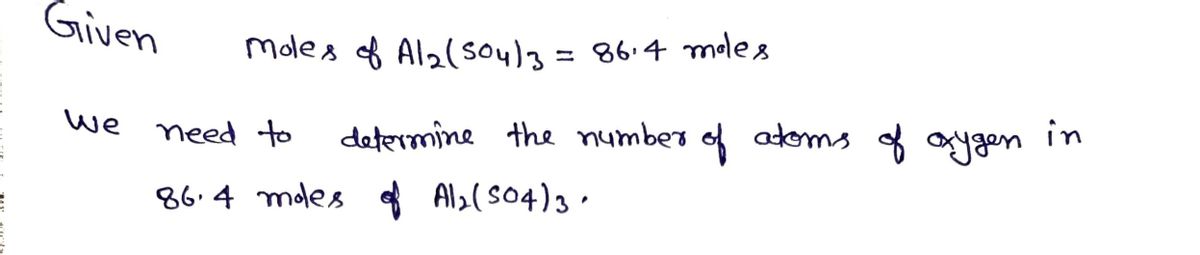 Given
moles of Al2(SO4)3 = 86.4 moles
We need to determine the number of atoms of oxygen in
86.4 moles of Al2(SO4)3.